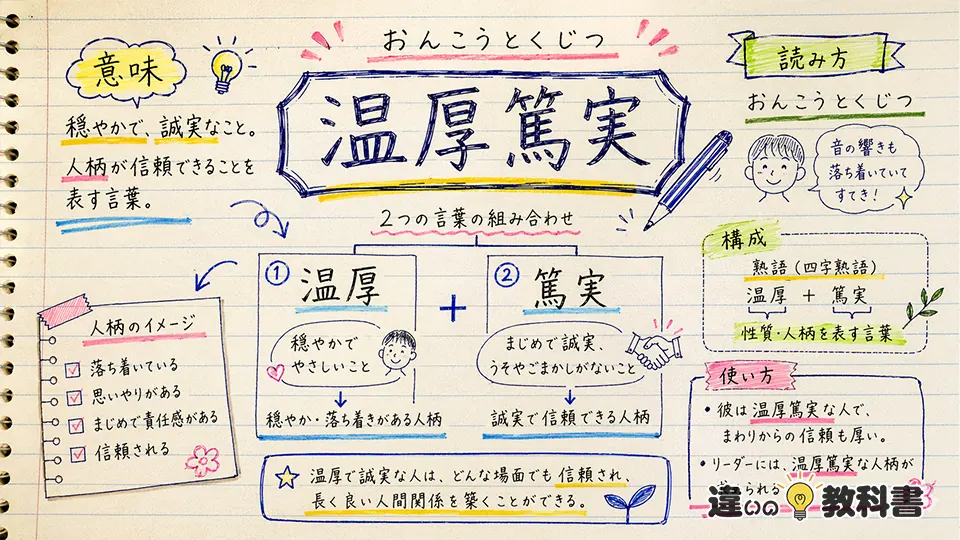 おんこうとくじつ
温厚篤実
意味
穏やかで、誠実なこと。
人柄が信頼できることを
表す言葉。
読み方
おんこうとくじつ
音の響きも
落ち着いていて
すてき!
2つの言葉の組み合わせ
① 温厚
穏やかで
やさしいこと
穏やか・落ち着きがある人柄
+
② 篤実
まじめで誠実、
うそやごまかしがないこと
誠実で信頼できる人柄
構成
熟語(四字熟語)
温厚 + 篤実
性質・人柄を表す言葉
人柄のイメージ
落ち着いている
思いやりがある
まじめで責任感がある
信頼される
使い方
・彼は温厚篤実な人で、
まわりからの信頼も厚い。
・リーダーには、温厚篤実な人柄が
られる
温厚で誠実な人は、どんな場面でも信頼され、
長く良い人間関係を築くことができる。
違いの教科書